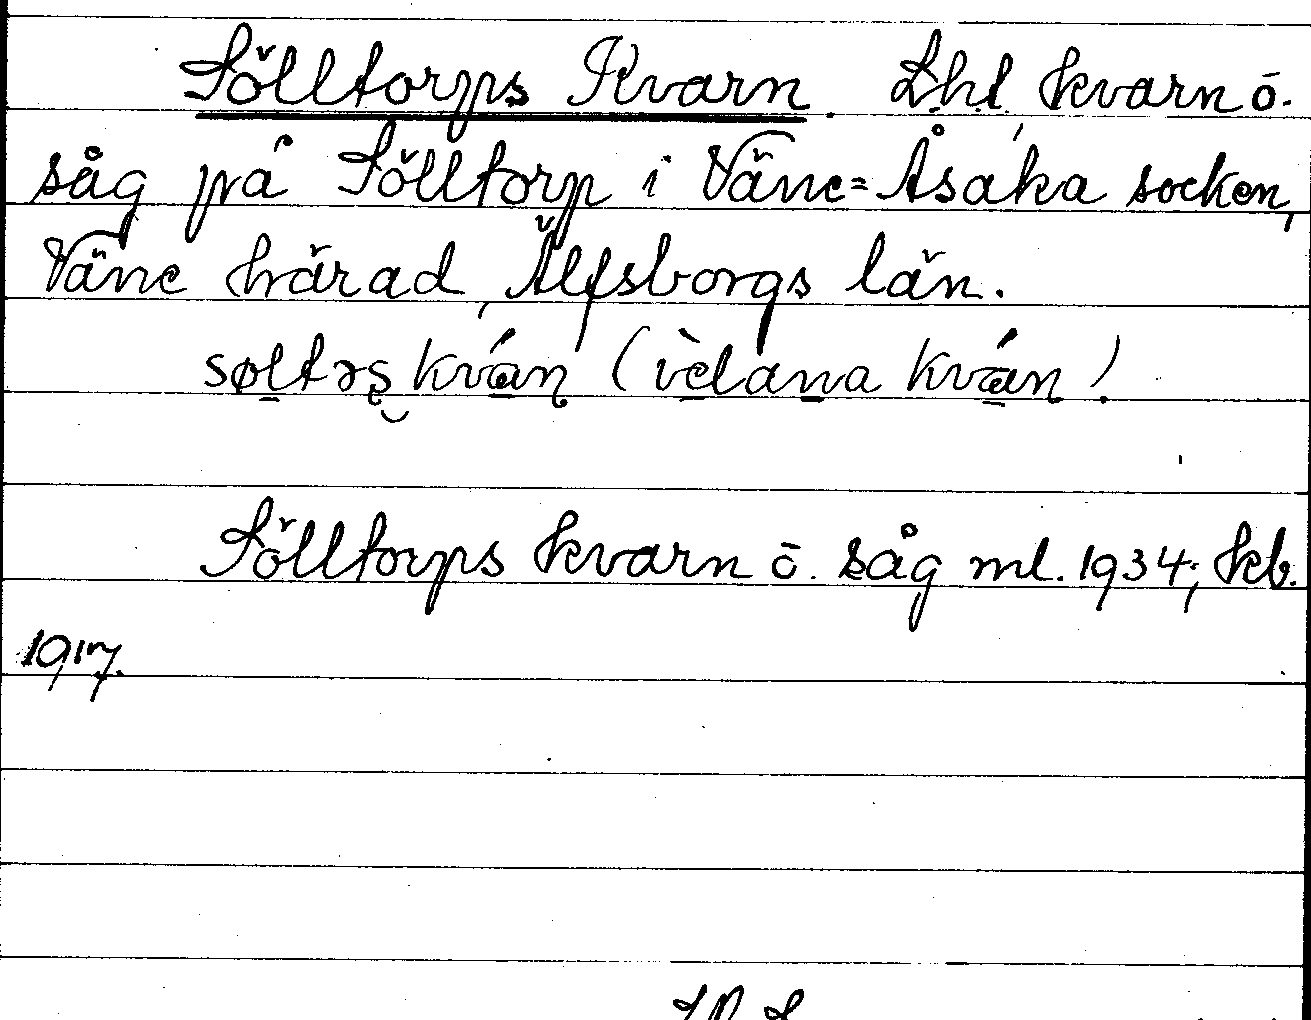 Sölltorps Kvarn. Lhl. kvarn o.
såg på Sölltorp i Väne=Åsaka socken,
Väne härad, Älfsborgs län.
søltəʂ kván (vèlana kván)
Sölltorps kvarn o. såg ml. 1934; kb.
1917.